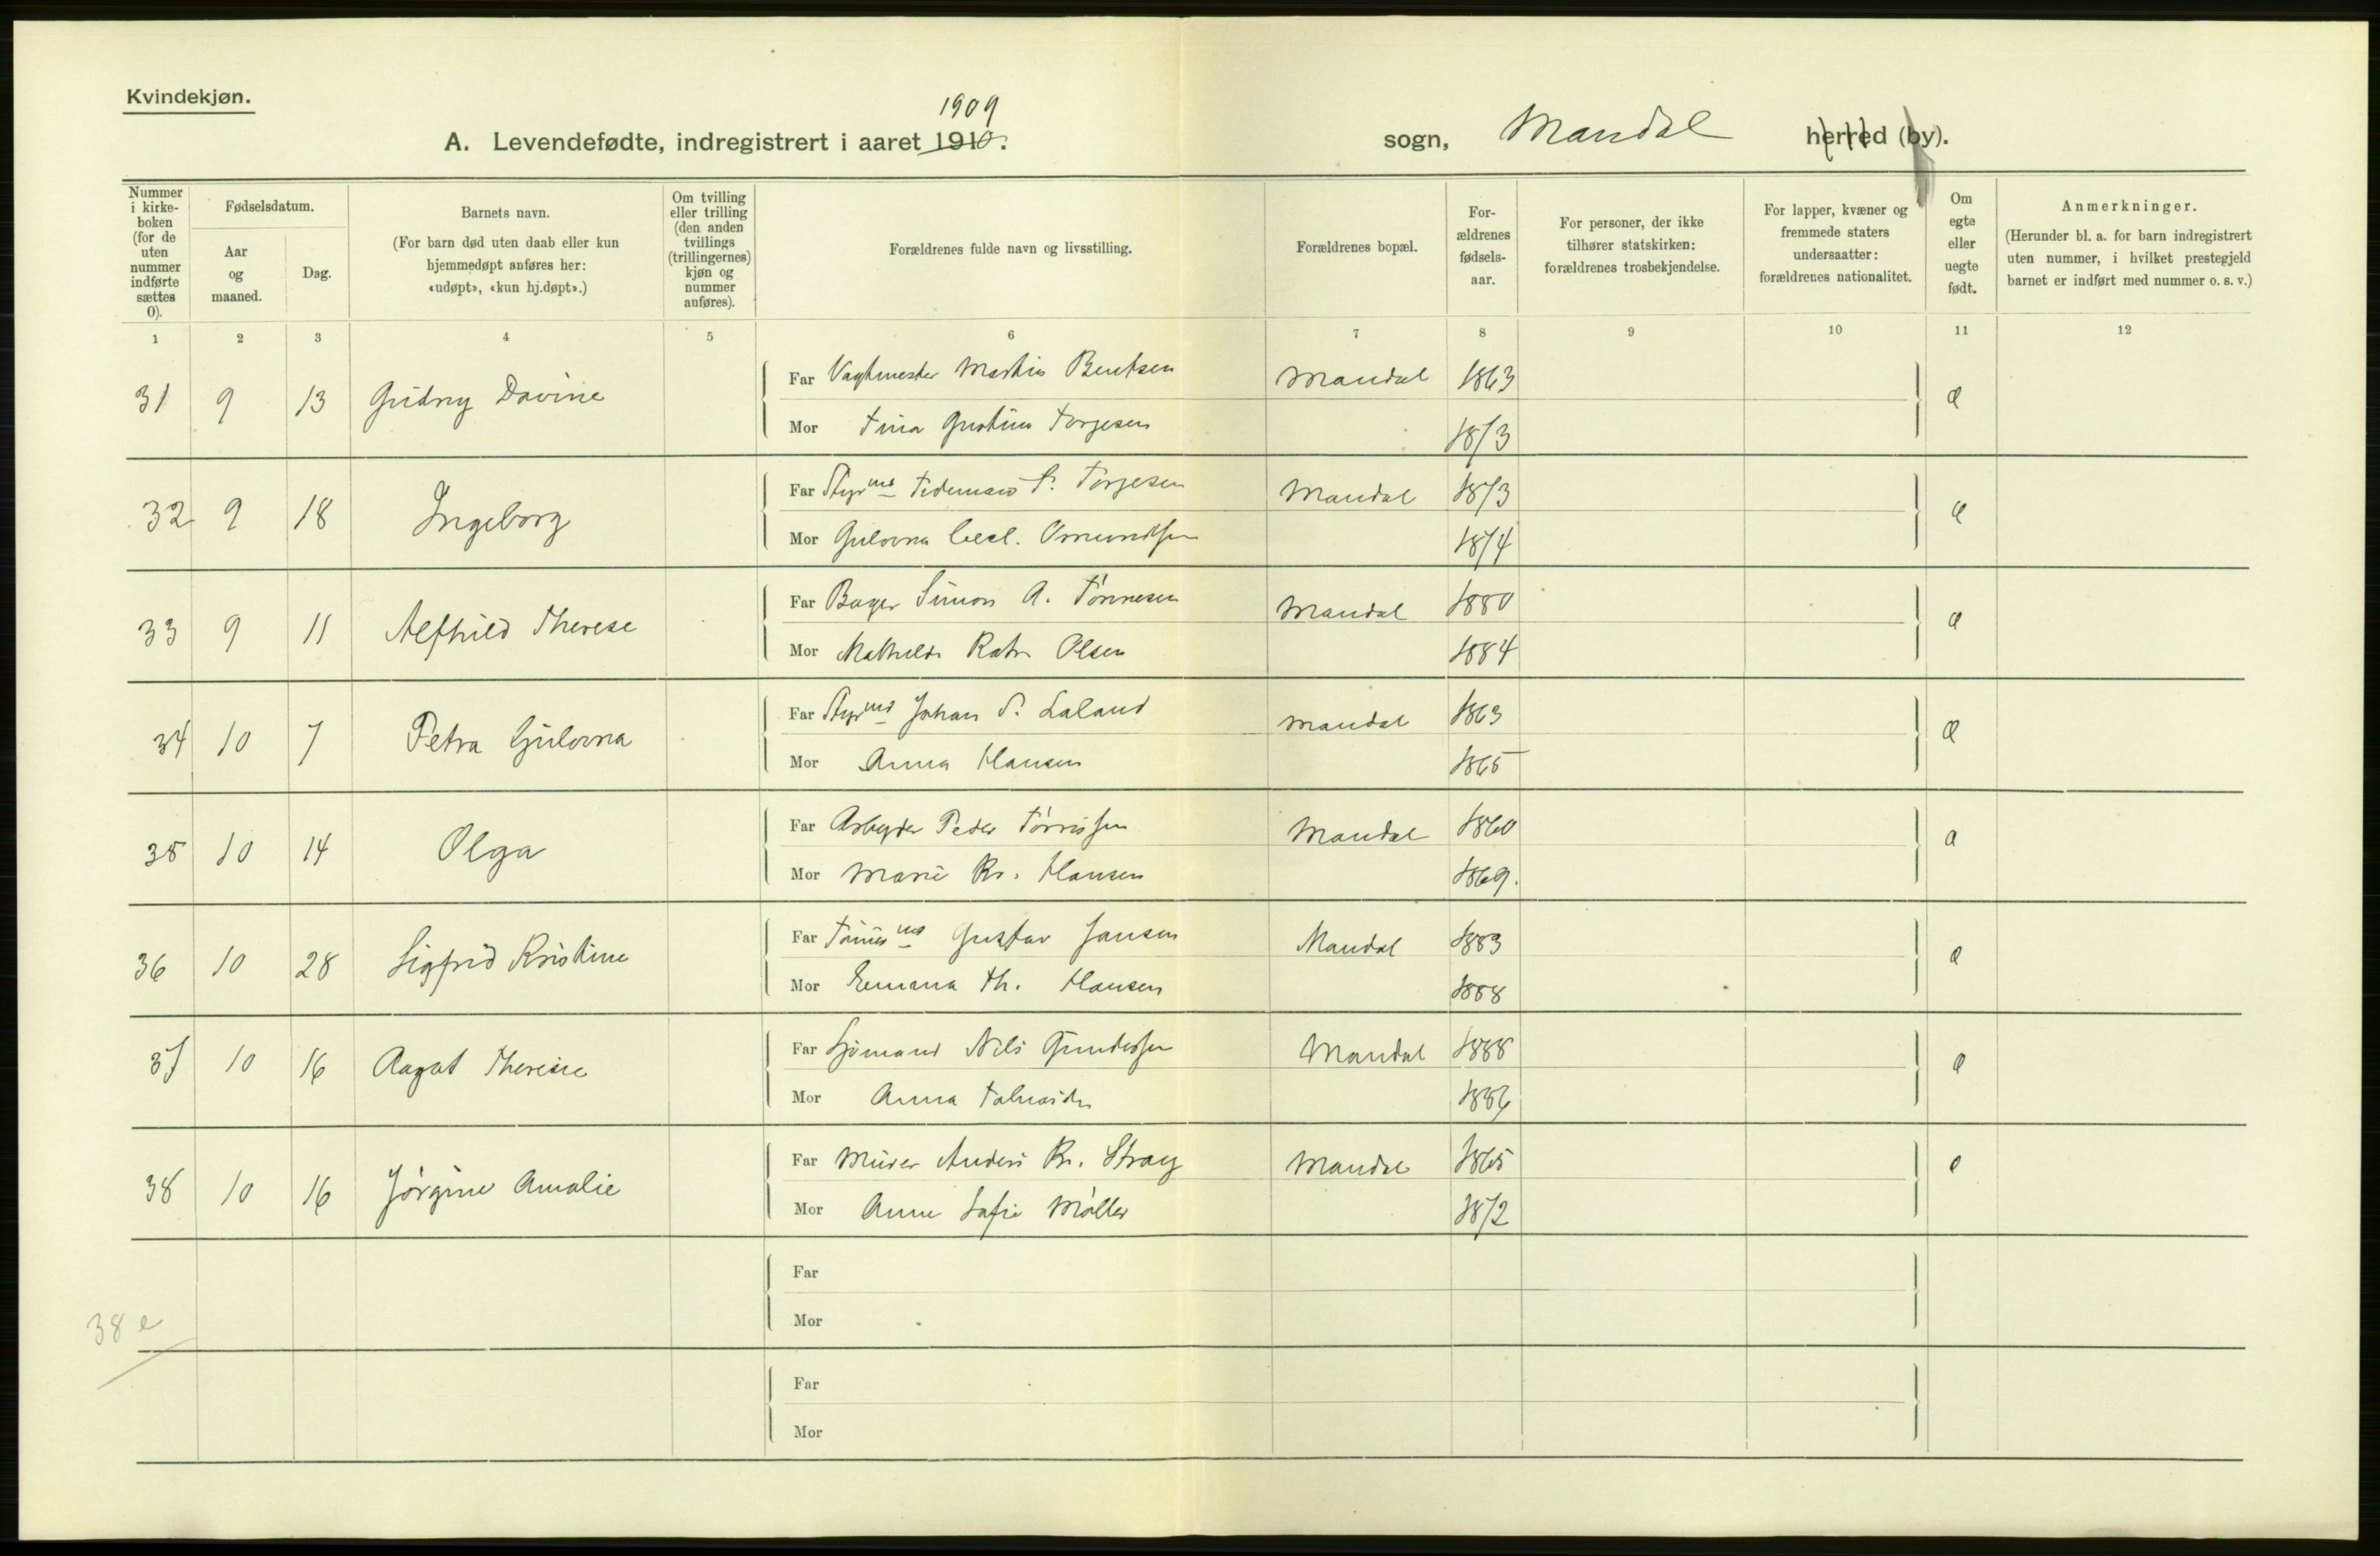 Kvindekjøn.
1909
A. Levendefødte, indregistrert i aaret 1910.
sogn, Mandal herred (by).
Nummer i kirke-boken (for de uten nummer indførte sættes 0).
Fødselsdatum.
Aar og maaned.
Dag.
Barnets navn.
(For barn død uten daab eller kun hjemmedøpt anføres her: «udøpt», «kun hj.døpt».)
Om tvilling eller trilling (den anden tvillings (trillingernes) kjøn og nummer anføres).
Forældrenes fulde navn og livsstilling.
Forældrenes bopæl.
For-ældrenes fødsels-aar.
For personer, der ikke tilhører statskirken: forældrenes trosbekjendelse.
For lapper, kvæner og fremmede staters undersaatter: forældrenes nationalitet.
Om egte eller uegte født.
Anmerkninger.
(Herunder bl. a. for barn indregistrert uten nummer, i hvilket prestegjeld barnet er indført med nummer o. s. v.)
1 2 3 4 5 6 7 8 9 10 11 12
31 9 13 Gudny Davine Far Vagtmester Martin Bentsen Mandal 1863 e
Mor Tina Gustine Torgesen 1873
32 9 18 Ingeborg Far Styrmd Tidemand T. Torgesen Mandal 1873 e
Mor Gulovna Cecl. Omundsen 1874
33 9 11 Alfhild Therese Far Bager Simon A. Tønnesen Mandal 1880 e
Mor Mathilde Katr. Olsen 1884
34 10 7 Petra Gulovna Far Styrmd Johan S. Laland Mandal 1863 e
Mor Anna Hansen 1865
35 10 14 Olga Far Arbeyder Peder Tørrissen Mandal 1860 e
Mor Marie Kr. Hansen 1869.
36 10 28 Sigfrid Kristine Far Tømmermd Gustav Jansen Mandal 1883 e
Mor Emma Th. Hansen 1888
37 10 16 Aagot Theresie Far Sjømand Nils Gundersen Mandal 1888 e
Mor Anna 1886
38 10 16 Jørgine Amalie Far Murer Anders Kr. Stray Mandal 1865 e
Mor Anne Sofie Møller 1872
Far
Mor
38 e
Far
Mor